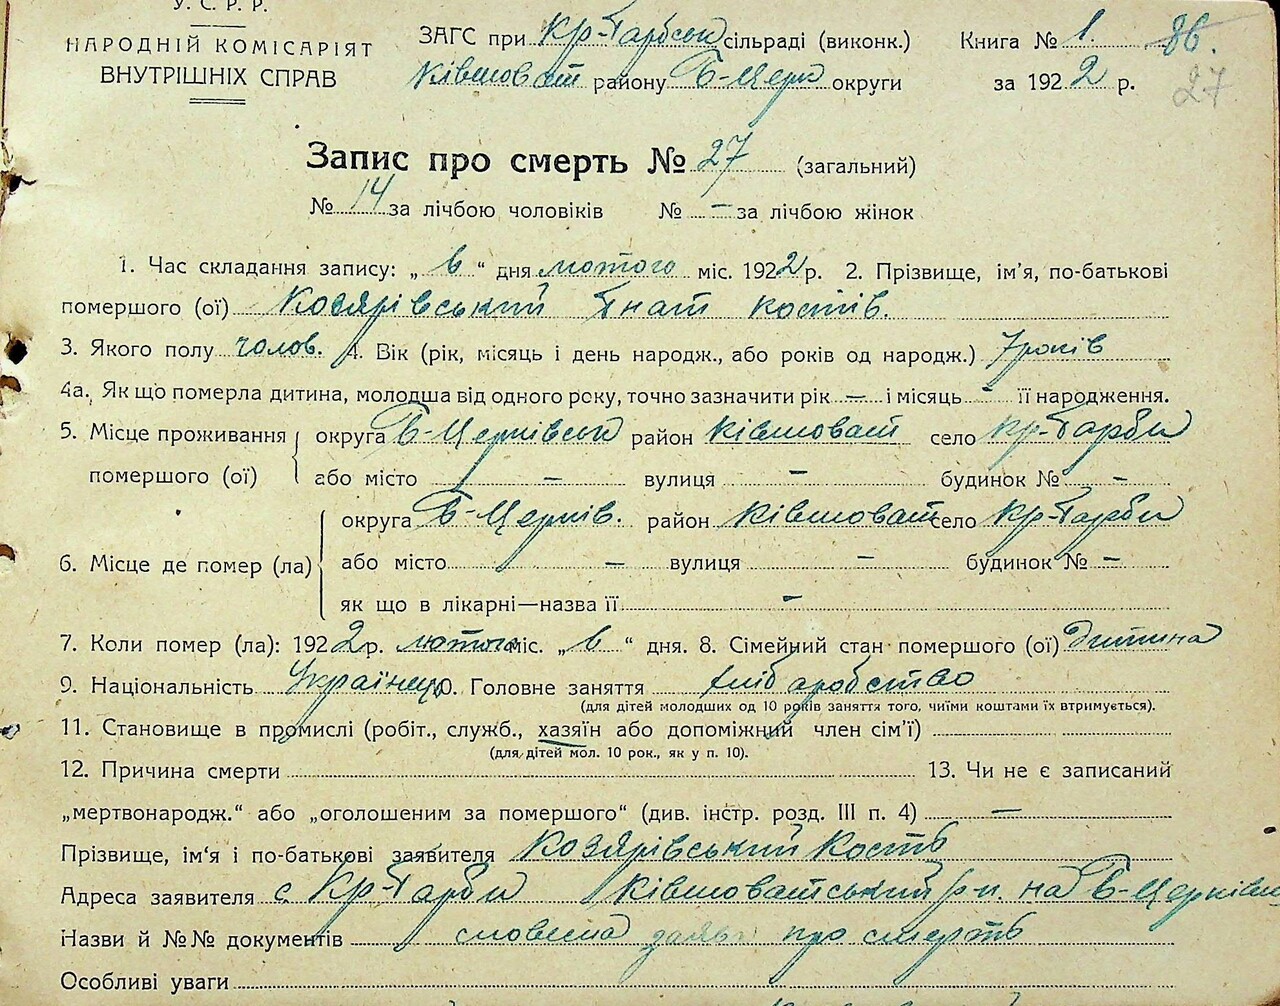 У. С. Р. Р.
НАРОДНІЙ КОМІСАРІЯТ
ВНУТРІШНІХ СПРАВ
ЗАГС при Кр-Гарбськ сільраді (виконк.)
Ківшоват району Б-Церк округи
Книга № 1. 86.
за 1922 р. 27
Запис про смерть № 27 (загальний)
№ 14 за лічбою чоловіків № – за лічбою жінок
1. Час складання запису: „ 6 “ дня лютого міс. 1922 р. 2. Прізвище, ім'я, по-батькові
помершого (ої) Козярівський Гнат Костів.
3. Якого полу чолов. 4. Вік (рік, місяць і день народж., або років од народж.) 7 років
4а. Як що померла дитина, молодша від одного року, точно зазначити рік – і місяць - її народження.
5. Місце проживання округа Б-Церківськ район Ківшоват село Кр-Гарби
помершого (ої) або місто – вулиця – будинок № –
округа Б-Церків. район Ківшоват село Кр-Гарби
6. Місце де помер (ла) або місто – вулиця – будинок № –
як що в лікарні—назва її –
7. Коли помер (ла): 1922 р. лютого міс. „ 6 “ дня. 8. Сімейний стан помершого (ої) Дитина
9. Національність Українец 10. Головне заняття хліборобство
(для дітей молодших од 10 років заняття того, чиїми коштами їх втримується).
11. Становище в промислі (робіт., служб., хазяїн або допоміжний член сім'ї)
(для дітей мол. 10 рок., як у п. 10).
12. Причина смерти 13. Чи не є записаний
„мертвонародж.“ або „оголошеним за помершого“ (див. інстр. розд. III п. 4) –
Прізвище, ім'я і по-батькові заявителя Козярівський Кость
Адреса заявителя с Кр-Гарби Ківшоватський р-н. на Б-Церківщ
Назви й №№ документів словесна заява про смерть
Особливі уваги